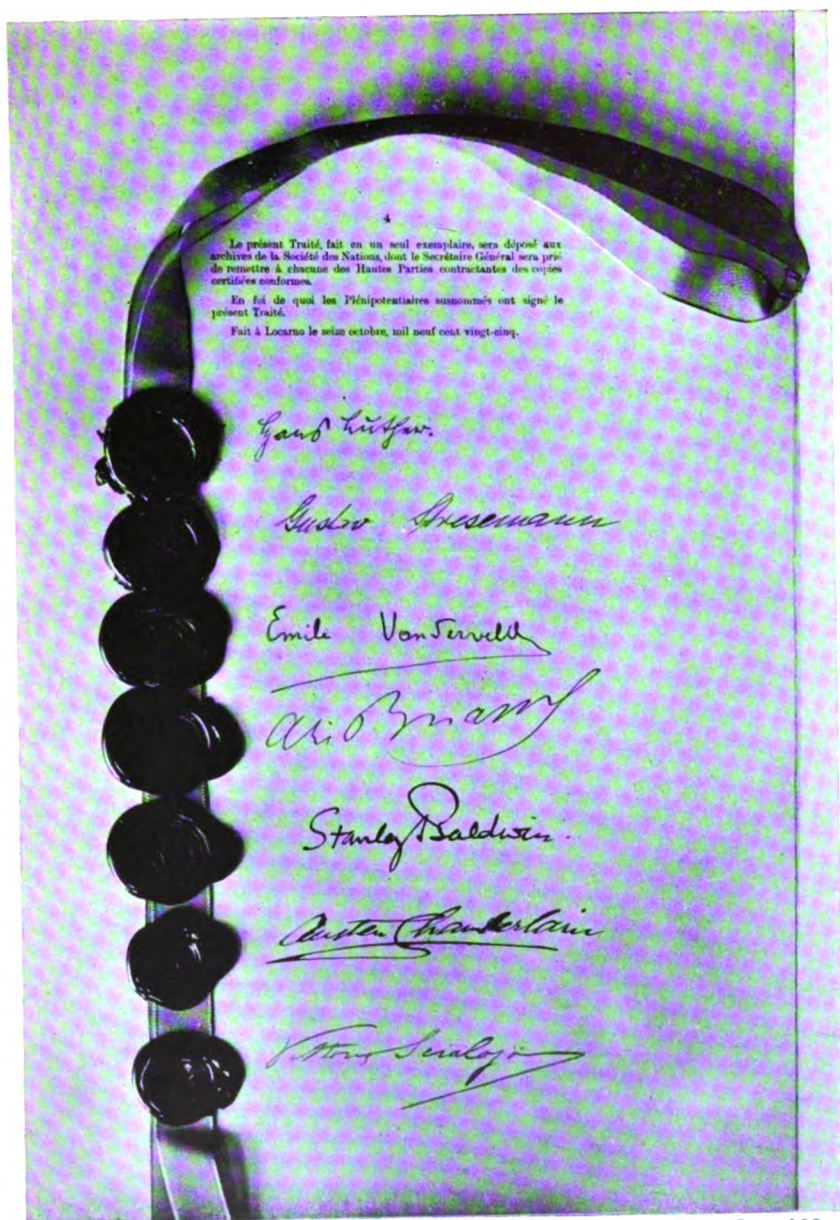 4
Le présent Traité, fait en un seul exemplaire, sera déposé aux
archives de la Société des Nations, dont le Secrétaire Général sera prié
de remettre à chacune des Hautes Parties contractantes des copies
certifiées conformes.
En foi de quoi les Plénipotentiaires susnommés ont signé le
présent Traité.
Fait à Locarno le seize octobre, mil neuf cent vingt-cinq.
Hans Luther.
Gustav Stresemann
Emile Vandervelde
Ari Briand
Stanley Baldwin.
Austen Chamberlain
Vittorio Scialoja